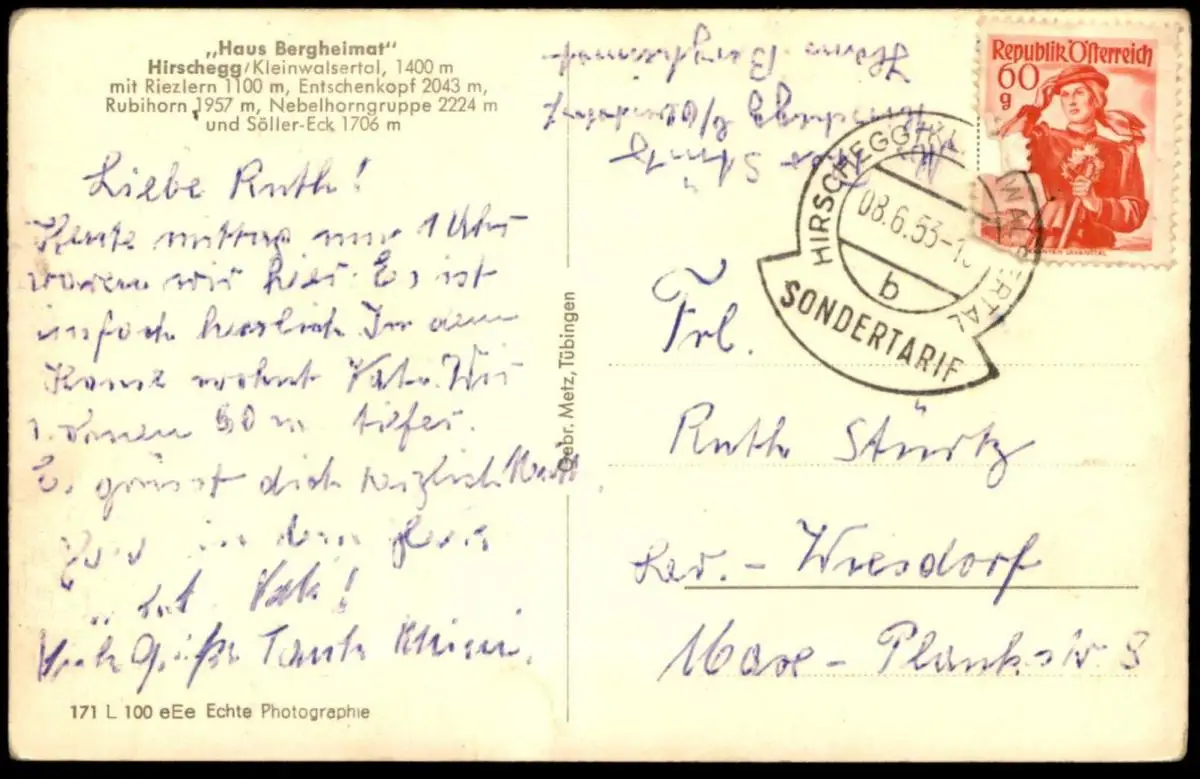 „Haus Bergheimat"
Hirschegg/Kleinwalsertal, 1400 m
mit Riezlern 1100 m, Entschenkopf 2043 m,
Rubihorn 1957 m, Nebelhorngruppe 2224 m
und Söller-Eck 1706 m
Liebe Ruth!
Heute mittag um 1 Uhr
waren wir hier. Es ist
einfach herrlich. In dem
wohnt Vati. Wir
50 m tiefer.
Es grüsst dich herzlich
in dem
Vati!
Viele Grüße Tante
171 L 100 eEe Echte Photographie
Gebr. Metz, Tübingen
Haus Bergheimat
Hirschegg
Stürtz
Republik Österreich
60
g
HIRSCHEGG, KL. WALSERTAL
08.6.53-1
b
SONDERTARIF
Frl.
Ruth Stürtz
Lev. - Wiesdorf
Max-Planckstr 8